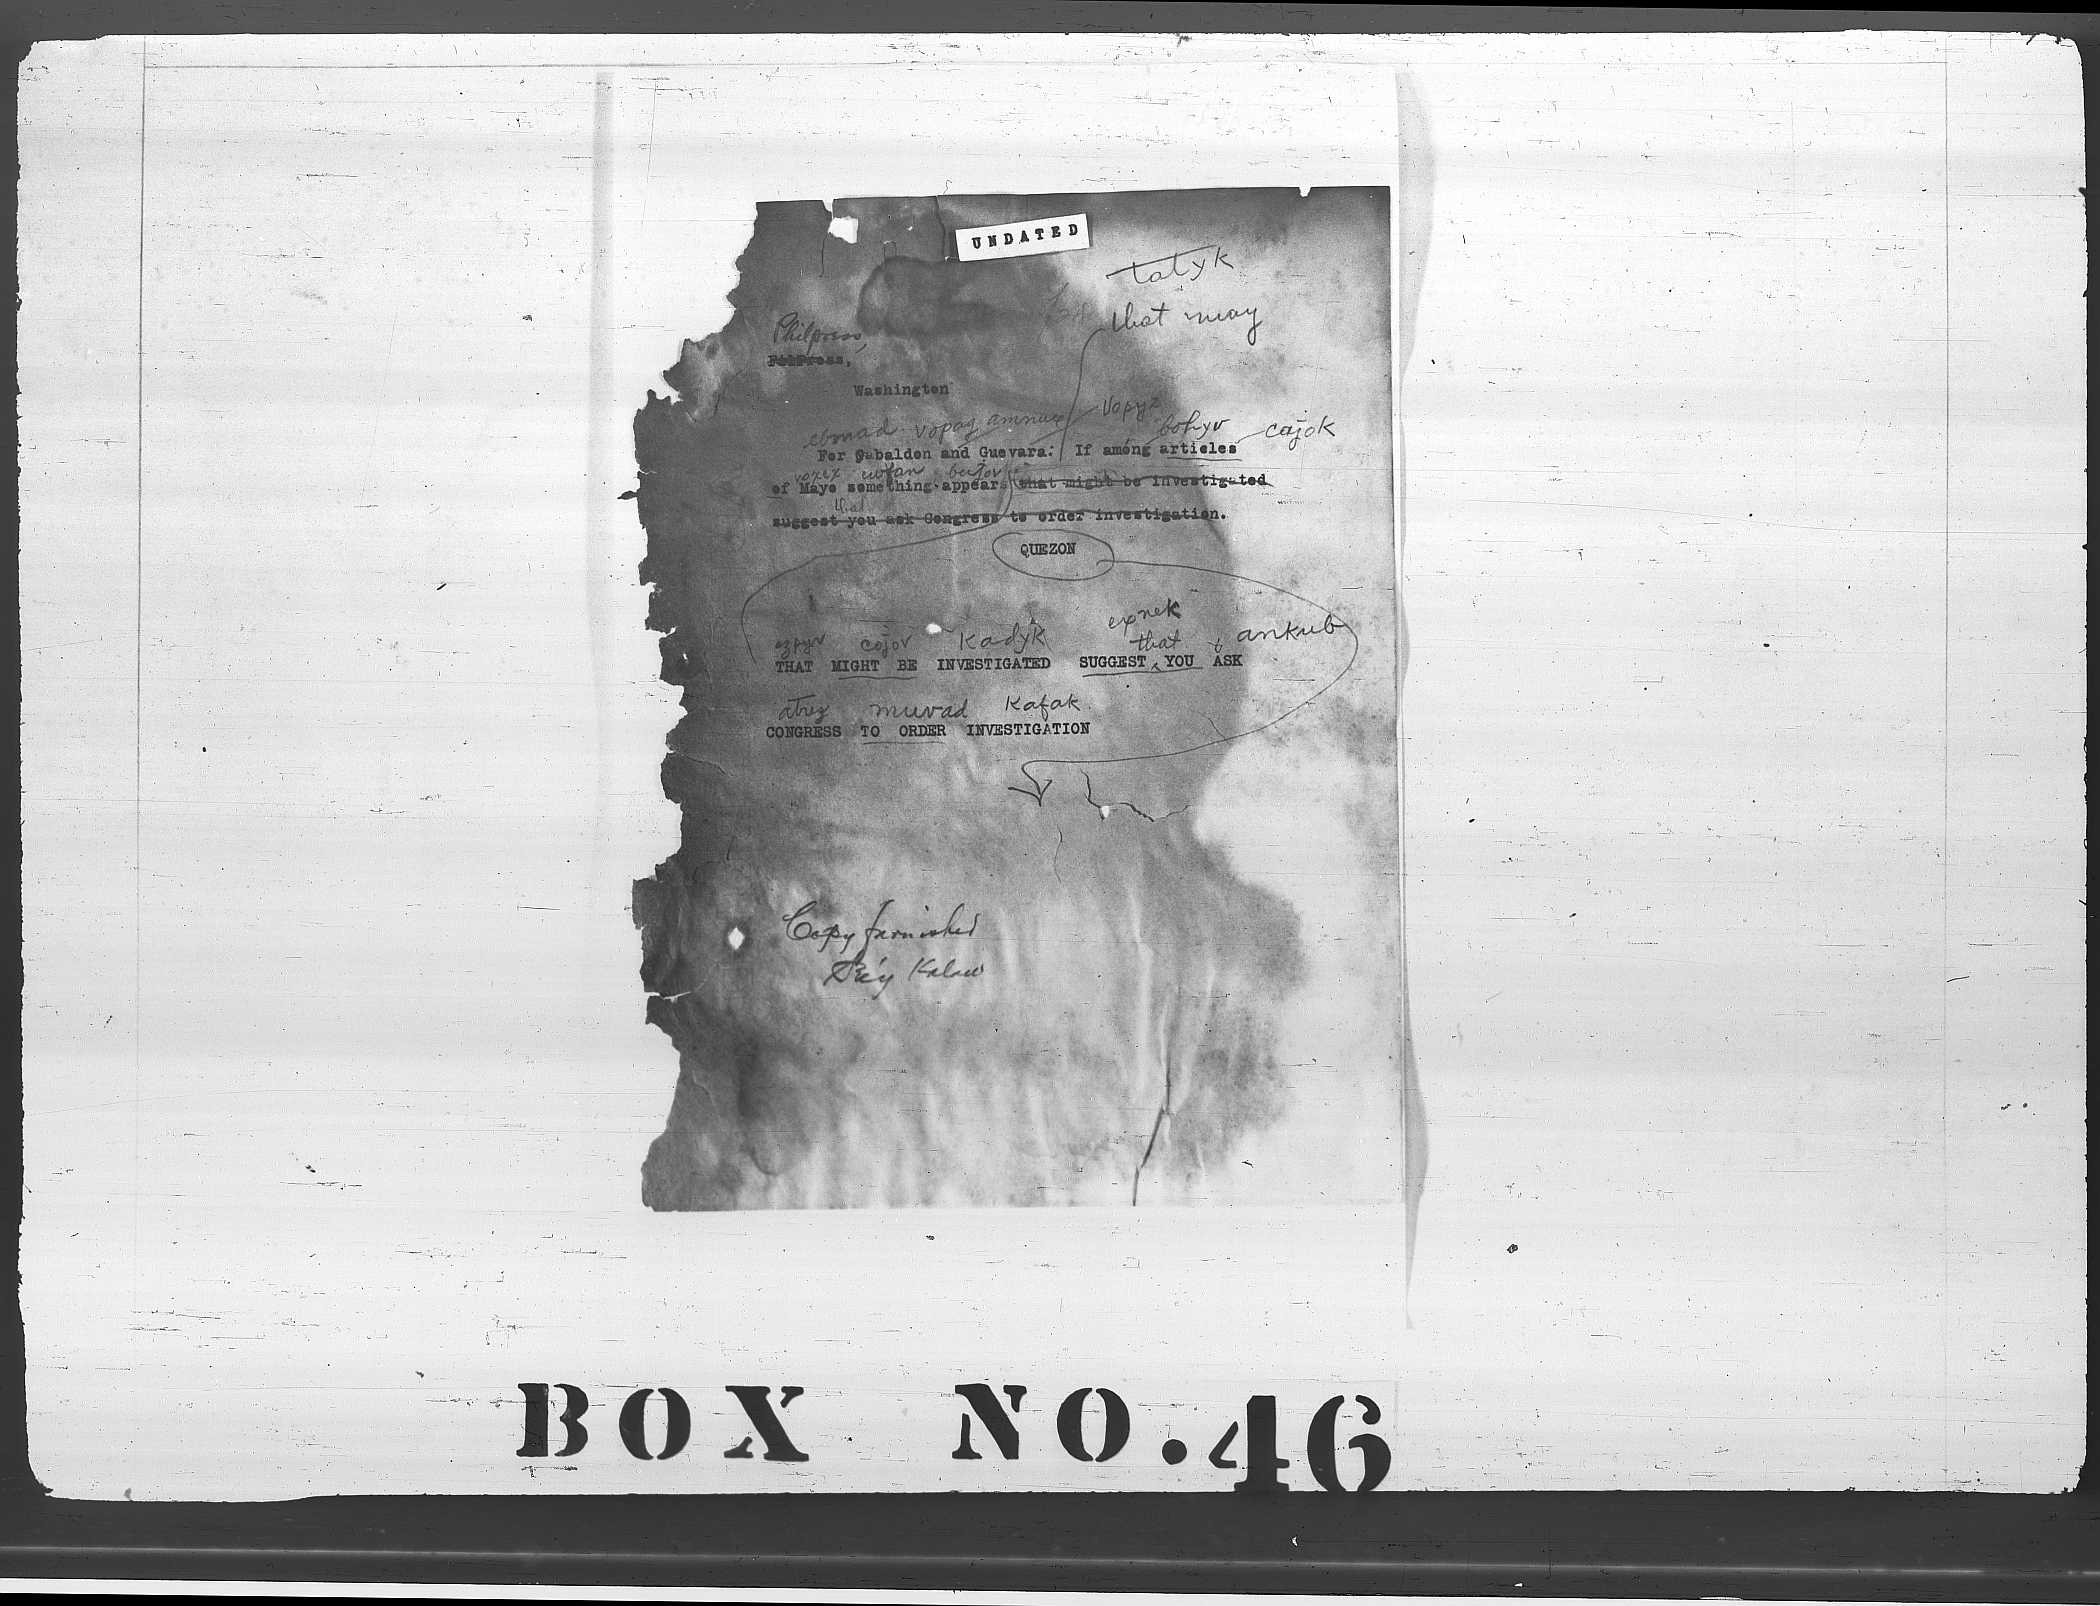 UNDATED
tatyk
that may
Philpress,
FilPress,
Washington
vopag amnux vopyz bohyv cajok
For Gabaldon and Guevara: If among articles
of Mayo something appears that might be investigated
that
suggest you ask Congress to order investigation.
QUEZON
expek
ezpyv cojov kadyk that ankub
THAT MIGHT BE INVESTIGATED SUGGEST YOU ASK
muvad kafak
CONGRESS TO ORDER INVESTIGATION
Copy furnished
Kalaw
BOX NO. 46